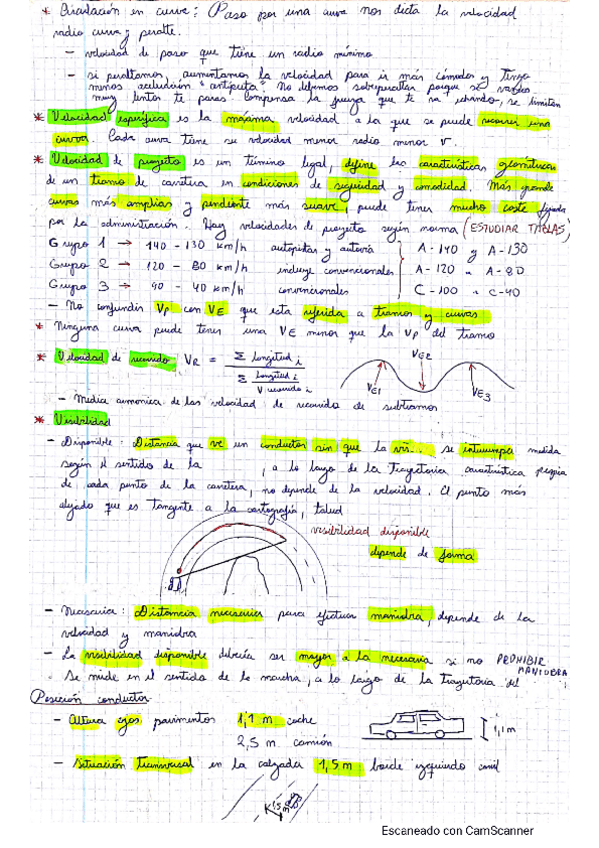 * Circulación en curva: Paso por una curva nos dicta la velocidad
radio curva y peralte.
- velocidad de paso que tiene un radio mínimo
- si peraltamos, aumentamos la velocidad para ir más cómodos y
menos No debemos sobreperaltar porque se
muy lentos te pasas compensa la fuerza que te va echando, se limitan
* Velocidad específica es la máxima velocidad a la que se puede recorrer una
curva. Cada curva tiene su velocidad menor radio menor v.
* Velocidad de proyecto es un término legal, define las características geométricas
de un tramo de carretera en condiciones de seguridad y comodidad. Más grande
curvas más amplias y pendiente más suave, puede tener mucho coste fijada
por la administración. Hay velocidades de proyecto según norma (ESTUDIAR TABLAS)
Grupo 1 → 140 - 130 km/h autopistas y autovía A-140 y A-130
Grupo 2 → 120 - 80 km/h incluye convencionales A-120 a A-80
Grupo 3 → 90 - 40 km/h convencionales C-100 a C-40
- No confundir Vp con VE que esta referida a tramos y curvas
* Ninguna curva puede tener una VE menor que la Vp del tramo
* Velocidad de recorrido VR = Σ longitud i / Σ longitud i / V recorrido i
VE1 VE2 VE3
- Media armonica de las velocidad de recorrido de subtramos
* Visibilidad
- Disponible: Distancia que ve un conductor sin que la vis... se interrumpa medida
según el sentido de la , a lo largo de la trayectoria característica propia
de cada punto de la carretera, no depende de la velocidad. El punto más
alejado que es tangente a la cartografía, talud
visibilidad disponible
depende de forma
- Necesaria: Distancia necesaria para efectuar maniobra, depende de la
velocidad y maniobra
- La visibilidad disponible debería ser mayor a la necesaria si no PROHIBIR
MANIOBRA
. Se mide en el sentido de la marcha, a lo largo de la trayectoria del
Posición conductor
- Altura ojos pavimentos 1,1 m coche
1,1m
2,5 m camión
- Situación transversal en la calzada 1,5 m borde izquierdo carril
1,5
Escaneado con CamScanner